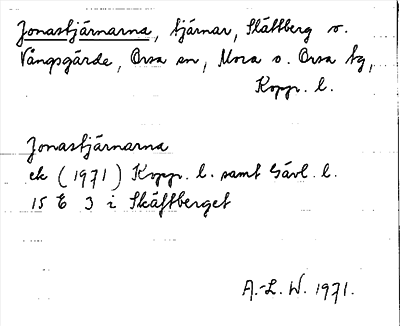 Jonastjärnarna, tjärnar, Skättberg o.
Vångsgärde, Orsa sn, Mora o. Orsa tg,
Kopp. l.
Jonastjärnarna
ek (1971) Kopp. l. samt Gävl. l.
15 E 3 i Skäftberget
A.-L. W. 1971.